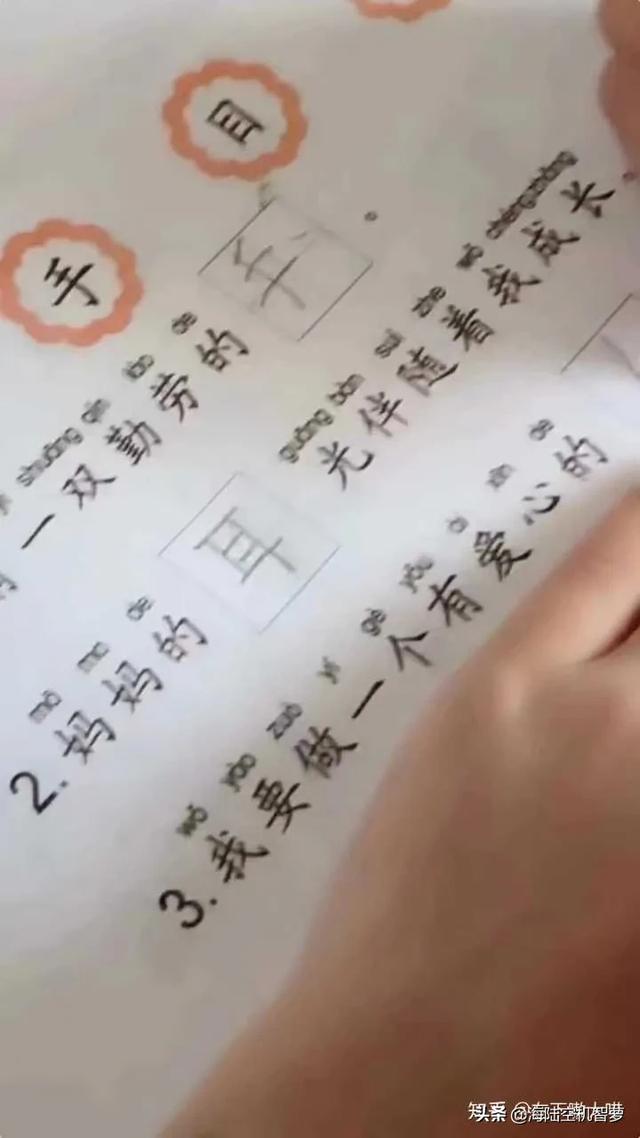 手 目
shuāng qín láo de
一双勤劳的手。
mā ma de guāng bàn suí zhe wǒ chéngzhǎng
2. 妈妈的耳光伴随着我成长。
wǒ yào zuò yí gè yǒu ài xīn de
3. 我要做一个有爱心的
头条 @海陆空机智萝